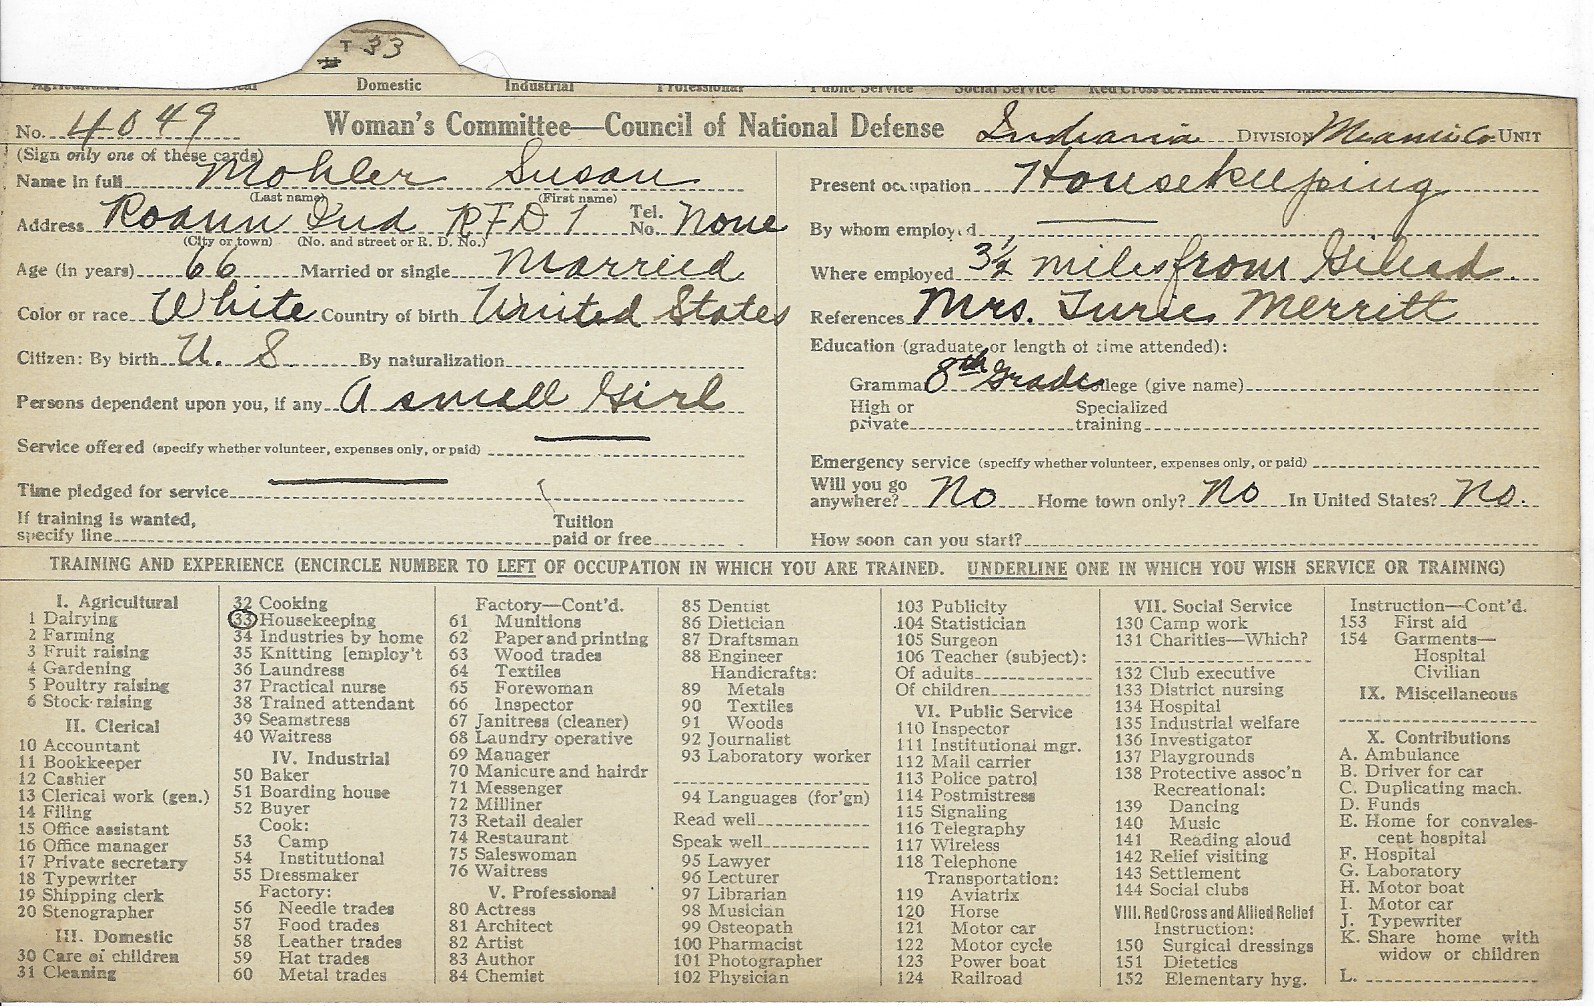 T 33
Domestic Industrial Professional Public Service Social Service Red Cross & Allied Relief Miscellaneous
No. 4049 Woman's Committee—Council of National Defense Indiana DIVISION Miami Co UNIT
(Sign only one of these cards)
Name in full Mohler Susan
(Last name) (First name)
Address Roann Ind RFD 1 Tel. No. None
(City or town) (No. and street or R. D. No.)
Age (in years) 66 Married or single Married
Color or race White Country of birth United States
Citizen: By birth U. S. By naturalization
Persons dependent upon you, if any A small Girl
Service offered (specify whether volunteer, expenses only, or paid)
Time pledged for service
If training is wanted,
specify line
Tuition
paid or free
Present occupation Housekeeping
By whom employed
Where employed 3½ miles from Gilead.
References Mrs. Turie Merritt
Education (graduate or length of time attended):
Gramma 8th Grade llege (give name)
High or
private
Specialized
training
Emergency service (specify whether volunteer, expenses only, or paid)
Will you go
anywhere? No Home town only? No In United States? No.
How soon can you start?
TRAINING AND EXPERIENCE (ENCIRCLE NUMBER TO LEFT OF OCCUPATION IN WHICH YOU ARE TRAINED. UNDERLINE ONE IN WHICH YOU WISH SERVICE OR TRAINING)
I. Agricultural
1 Dairying
2 Farming
3 Fruit raising
4 Gardening
5 Poultry raising
6 Stock raising
II. Clerical
10 Accountant
11 Bookkeeper
12 Cashier
13 Clerical work (gen.)
14 Filing
15 Office assistant
16 Office manager
17 Private secretary
18 Typewriter
19 Shipping clerk
20 Stenographer
III. Domestic
30 Care of children
31 Cleaning
32 Cooking
33 Housekeeping
34 Industries by home
35 Knitting [employ't
36 Laundress
37 Practical nurse
38 Trained attendant
39 Seamstress
40 Waitress
IV. Industrial
50 Baker
51 Boarding house
52 Buyer
Cook:
53 Camp
54 Institutional
55 Dressmaker
Factory:
56 Needle trades
57 Food trades
58 Leather trades
59 Hat trades
60 Metal trades
Factory—Cont'd.
61 Munitions
62 Paper and printing
63 Wood trades
64 Textiles
65 Forewoman
66 Inspector
67 Janitress (cleaner)
68 Laundry operative
69 Manager
70 Manicure and hairdr
71 Messenger
72 Milliner
73 Retail dealer
74 Restaurant
75 Saleswoman
76 Waitress
V. Professional
80 Actress
81 Architect
82 Artist
83 Author
84 Chemist
85 Dentist
86 Dietician
87 Draftsman
88 Engineer
Handicrafts:
89 Metals
90 Textiles
91 Woods
92 Journalist
93 Laboratory worker
94 Languages (for'gn)
Read well
Speak well
95 Lawyer
96 Lecturer
97 Librarian
98 Musician
99 Osteopath
100 Pharmacist
101 Photographer
102 Physician
103 Publicity
104 Statistician
105 Surgeon
106 Teacher (subject):
Of adults
Of children
VI. Public Service
110 Inspector
111 Institutional mgr.
112 Mail carrier
113 Police patrol
114 Postmistress
115 Signaling
116 Telegraphy
117 Wireless
118 Telephone
Transportation:
119 Aviatrix
120 Horse
121 Motor car
122 Motor cycle
123 Power boat
124 Railroad
VII. Social Service
130 Camp work
131 Charities—Which?
132 Club executive
133 District nursing
134 Hospital
135 Industrial welfare
136 Investigator
137 Playgrounds
138 Protective assoc'n
Recreational:
139 Dancing
140 Music
141 Reading aloud
142 Relief visiting
143 Settlement
144 Social clubs
VIII. Red Cross and Allied Relief
Instruction:
150 Surgical dressings
151 Dietetics
152 Elementary hyg.
Instruction—Cont'd.
153 First aid
154 Garments—
Hospital
Civilian
IX. Miscellaneous
X. Contributions
A. Ambulance
B. Driver for car
C. Duplicating mach.
D. Funds
E. Home for convales-
cent hospital
F. Hospital
G. Laboratory
H. Motor boat
I. Motor car
J. Typewriter
K. Share home with
widow or children
L.